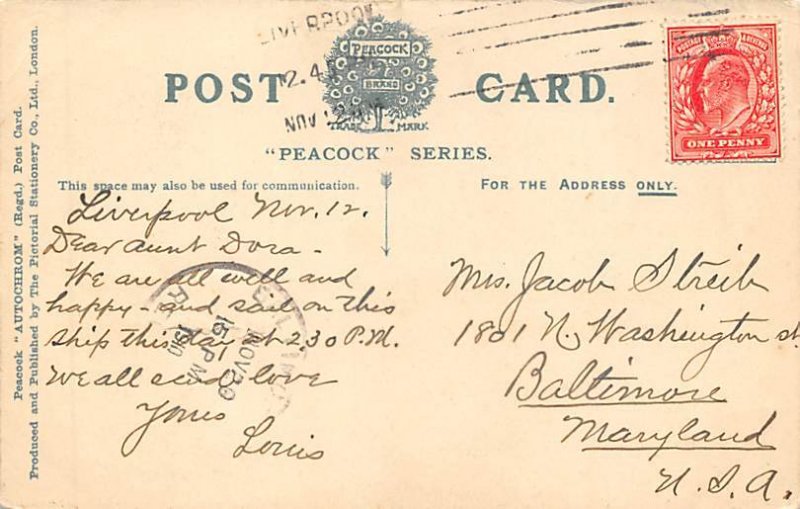 LIVERPOOL
2.4
NOV 12
PEACOCK
BRAND
TRADE MARK
POST CARD.
"PEACOCK" SERIES.
POSTAGE REVENUE
ONE PENNY
This space may also be used for communication.
FOR THE ADDRESS ONLY.
Peacock "AUTOCHROM" (Regd.) Post Card.
Produced and Published by The Pictorial Stationery Co., Ltd., London.
Liverpool Nov. 12.
Dear aunt Dora -
We are all well and
happy - and sail on this
ship this day at 2.30 P.M.
We all send love
Yours
Louis
Mrs. Jacob Streib
1801 N. Washington st.
Baltimore
Maryland
U.S.A.
NOV 20
15 P.M
1910